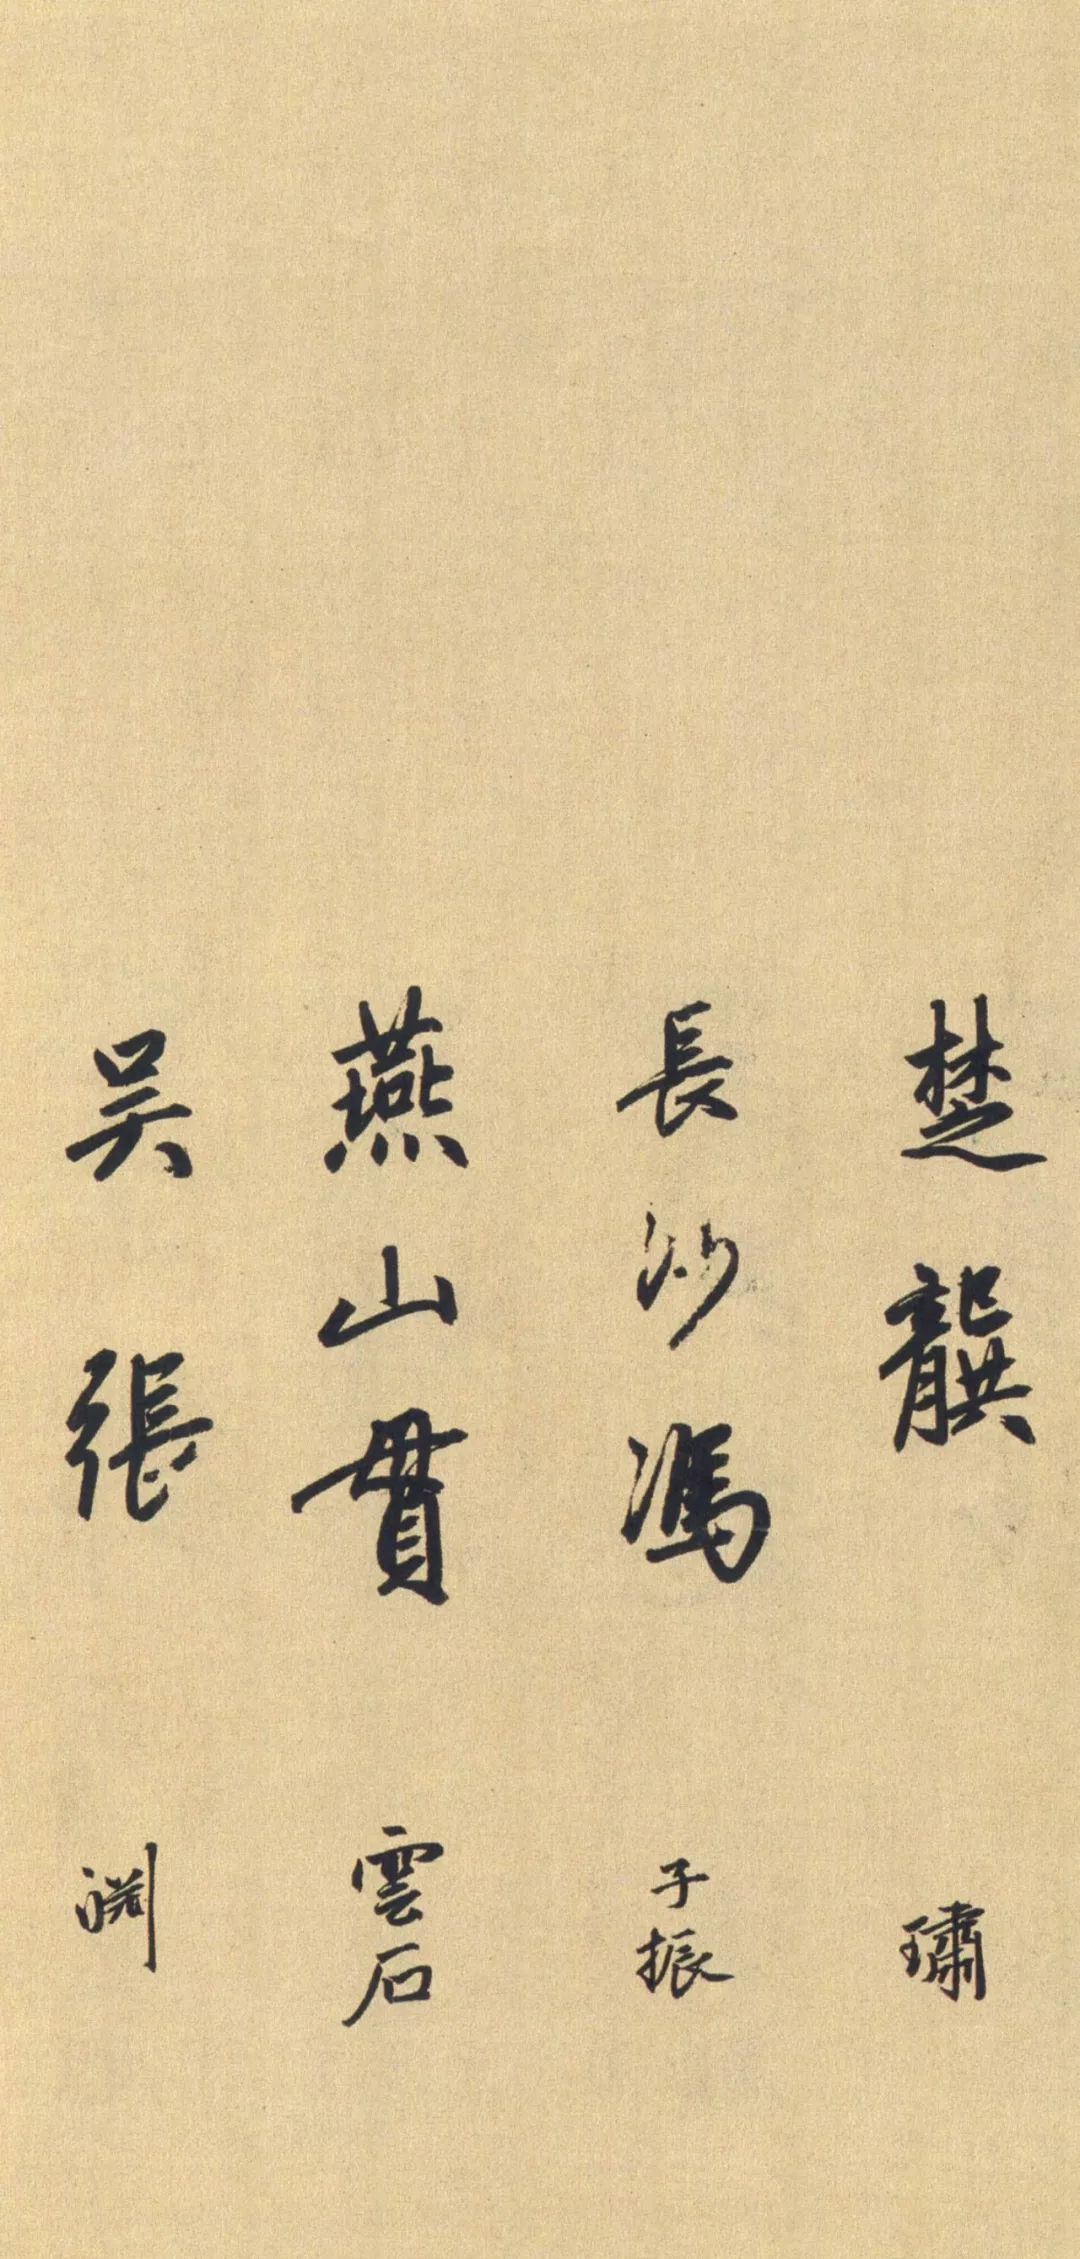 楚龔璛
長沙馮子振
燕山貫雲石
吴張淵